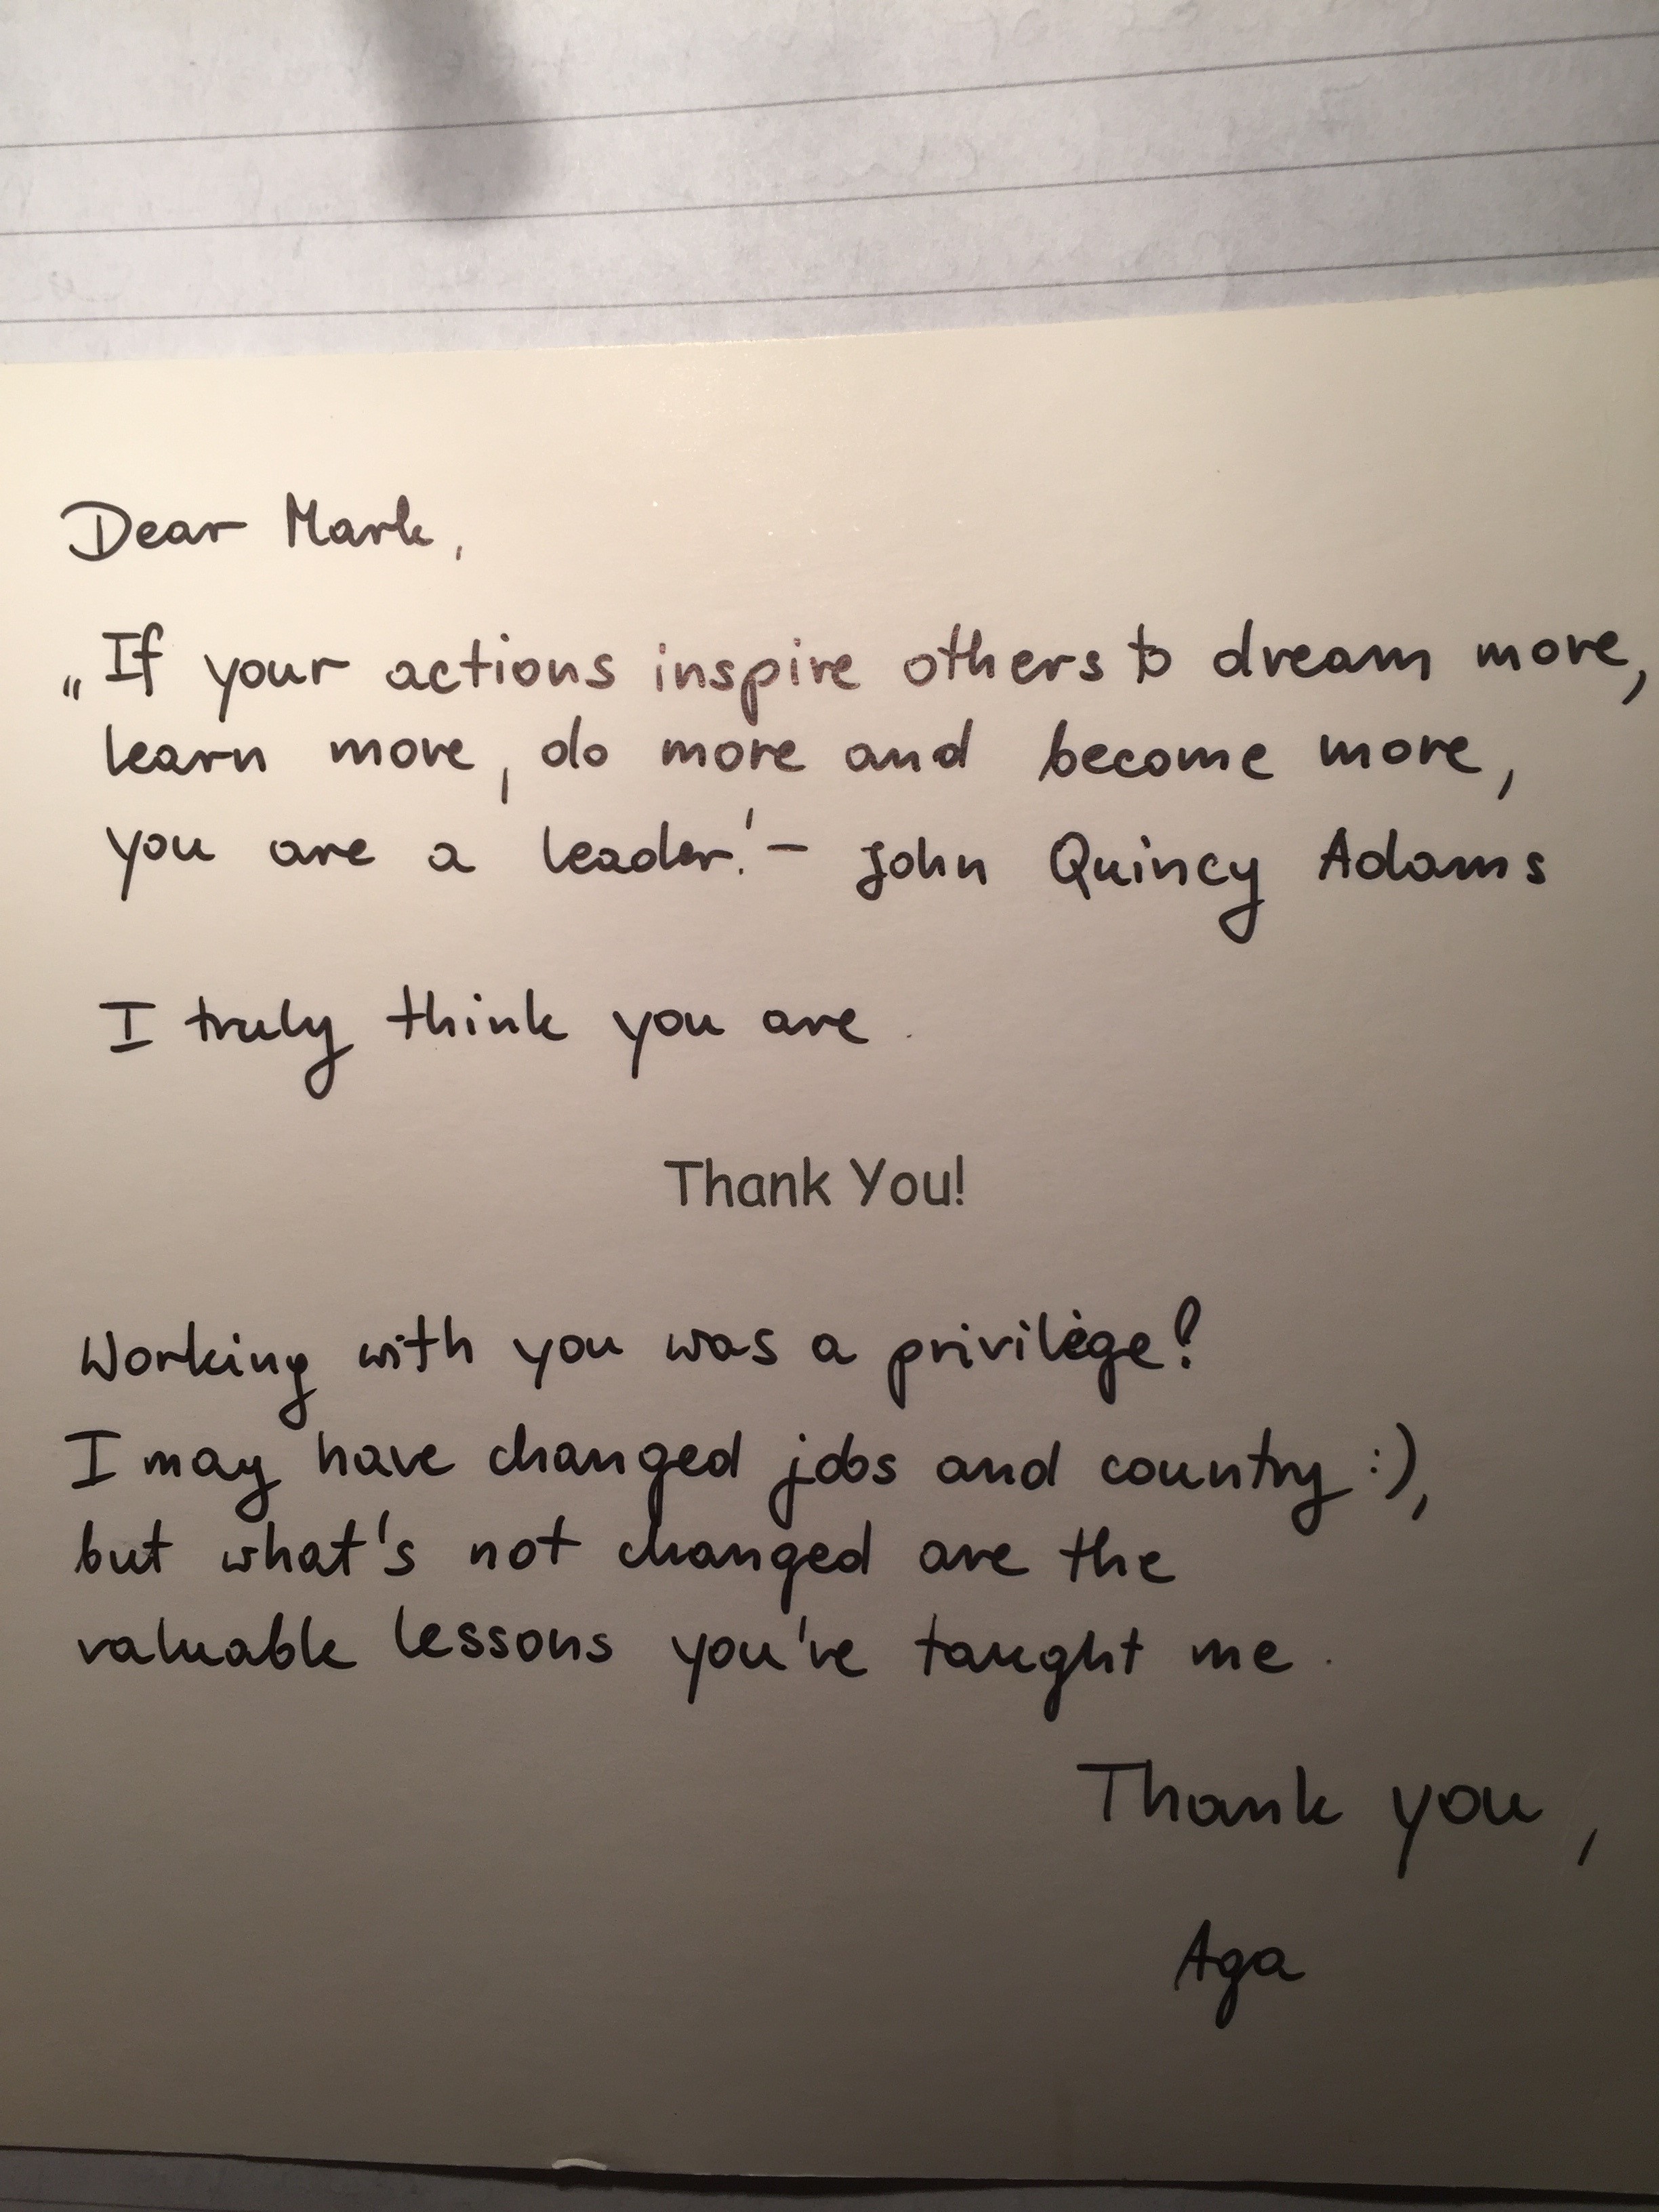 Dear Mark,
„If your actions inspire others to dream more,
learn more, do more and become more,
you are a leader." – John Quincy Adams
I truly think you are.
Thank You!
Working with you was a privilege!
I may have changed jobs and country :),
but what's not changed are the
valuable lessons you've taught me.
Thank you,
Aga